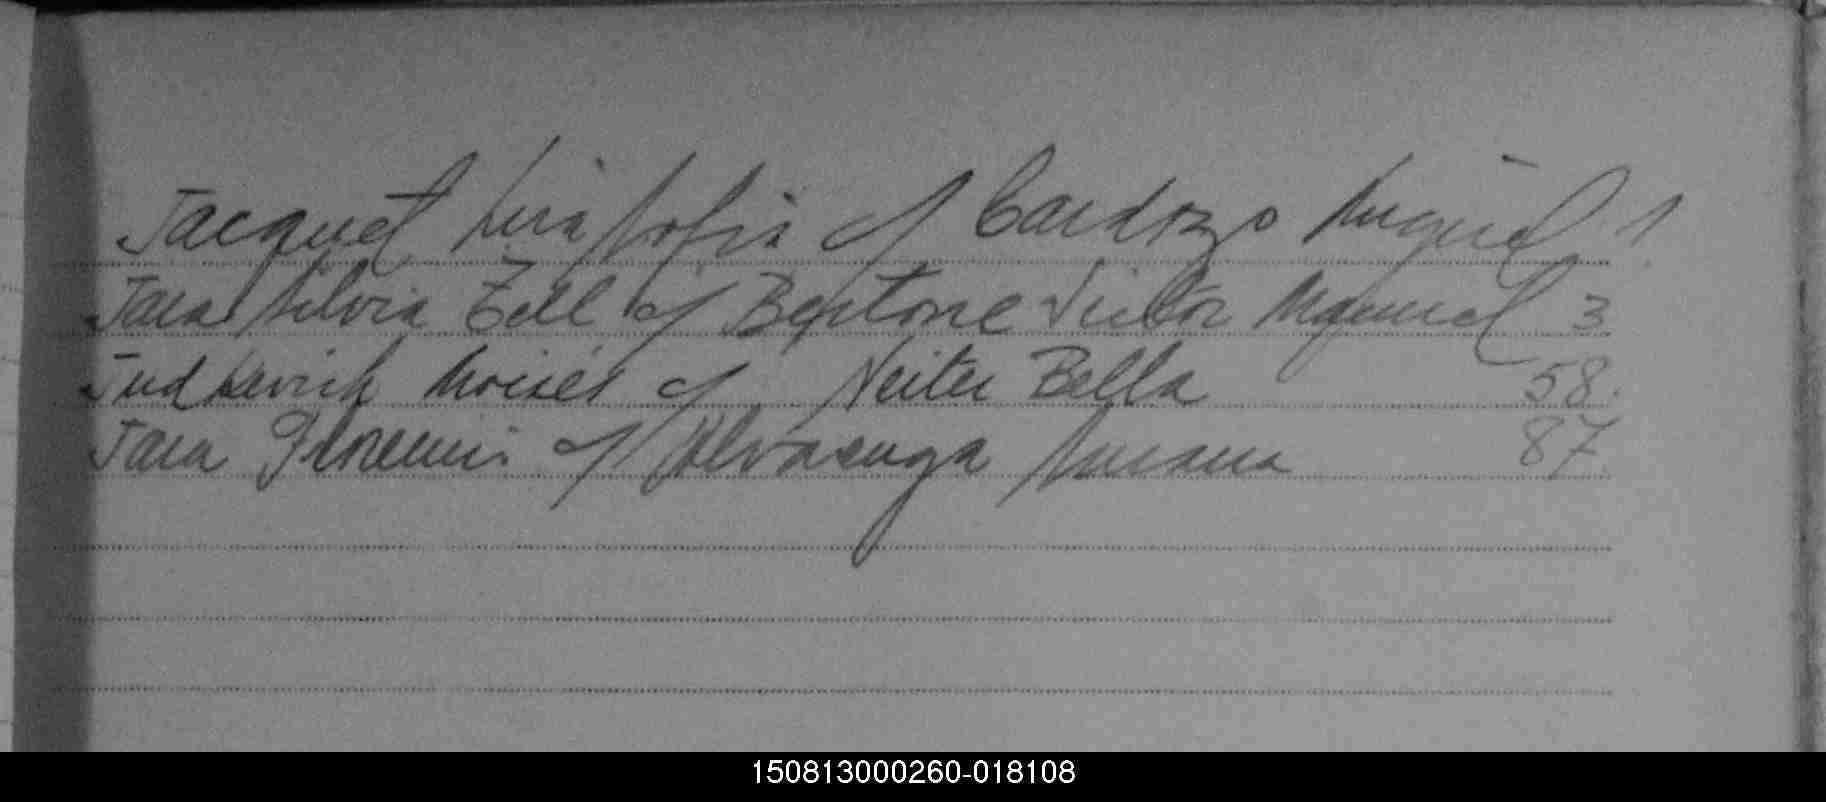 Jacquet Lira Sofia c/ Cardozo Miguel 1
Jara Silvia Zell c/ Beptone Victor Manuel 3
Judkevich Moisés c/ Neiter Bella 58.
Jara c/ Alvarenga 87.
150813000260-018108